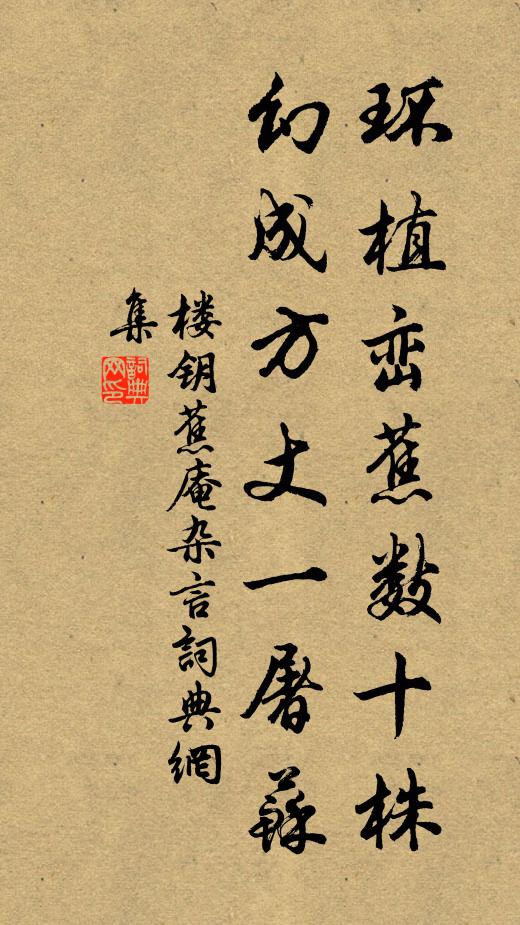 环植峦蕉数十株
幻成方丈一屠蘇
楼钥蕉庵杂言詞典網
集
詞典
网印